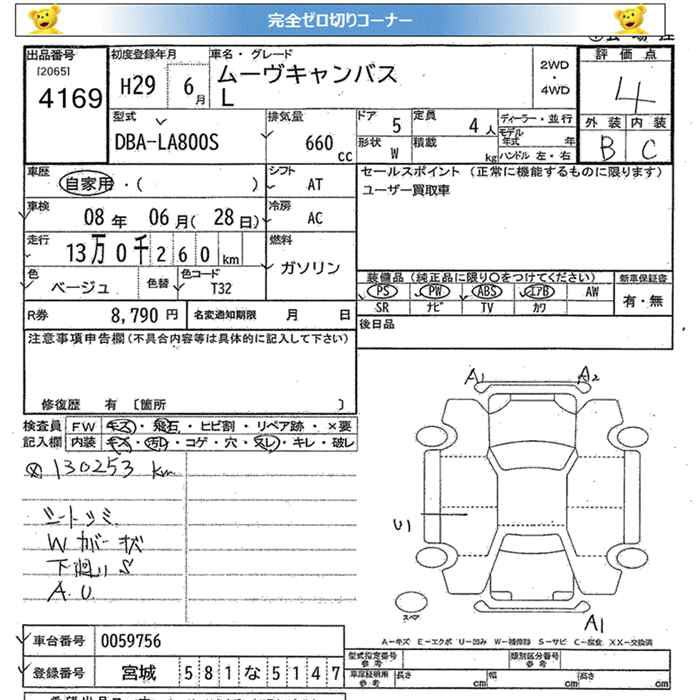 完全ゼロ切りコーナー
出品番号
[2065]
4169
初度登録年月
H29 6月
車名・グレード
ムーヴキャンバス
L
2WD
・
4WD
評価点
4
外装 内装
B C
型式
DBA-LA800S
排気量
660 cc
ドア 5
定員 4人
形状 W
積載 kg
ディーラー・並行
モデル年式 年
ハンドル 左・右
車歴
自家用・( )
シフト
AT
セールスポイント (正常に機能するものに限ります)
ユーザー買取車
車検
08年 06月( 28日)
冷房
AC
走行
13万0千260km
燃料
ガソリン
色
ベージュ
色替
色コード
T32
装備品(純正品に限り〇をつけてください)
新車保証書
PS PW ABS エアB AW
有・無
SR ナビ TV カワ
R券 8,790円
名変通知期限 月 日
後日品
注意事項申告欄(不具合内容等は具体的に記入して下さい)
修復歴 有 〔箇所 〕
検査員
記入欄
FW キズ・飛石・ヒビ割・リペア跡・×要
内装 キズ・汚レ・コゲ・穴・スレ・キレ・破レ
130253 km
シートシミ
Wカバー状
下廻りS
A.U.
A1 A2
U1
スペア
A1
A-キズ E-エクボ U-凹み W-補修跡 S-サビ C-腐食 XX-交換済
車台番号 0059756
型式指定番号
参考
類別区分番号
参考
登録番号 宮城 581な5147
車庫証明用
参考
長さ cm 幅 cm 高さ cm